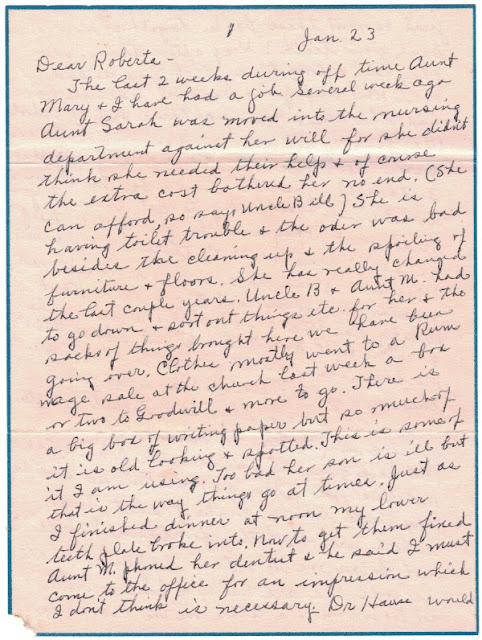 Jan. 23
Dear Roberta -
The last 2 weeks during off time Aunt
Mary & I have had a job. Several week ago
Aunt Sarah was moved into the nursing
department against her will for she didn't
think she needed their help & of course
the extra cost bothered her no end. (She
can afford, so says Uncle Bill) She is
having toilet trouble & the oder was bad
besides the cleaning up & the spoiling of
furniture & floors. She has really changed
the last couple years. Uncle B & Aunt M. had
to go down & sort out things etc. for her & the
sacks of things brought here we have been
going over. Clothes mostly went to a Rum
mage sale at the church last week a box
or two to Goodwill & more to go. There is
a big box of writing paper but so much of
it is old looking & spotted. This is some of
it I am using. Too bad her son is ill but
that is the way things go at times. Just as
I finished dinner at noon my lower
teeth plate broke into. Now to get them fixed
Aunt M. phoned her dentist & he said I must
come to the office for an impression which
I don't think is necessary. Dr Hause would